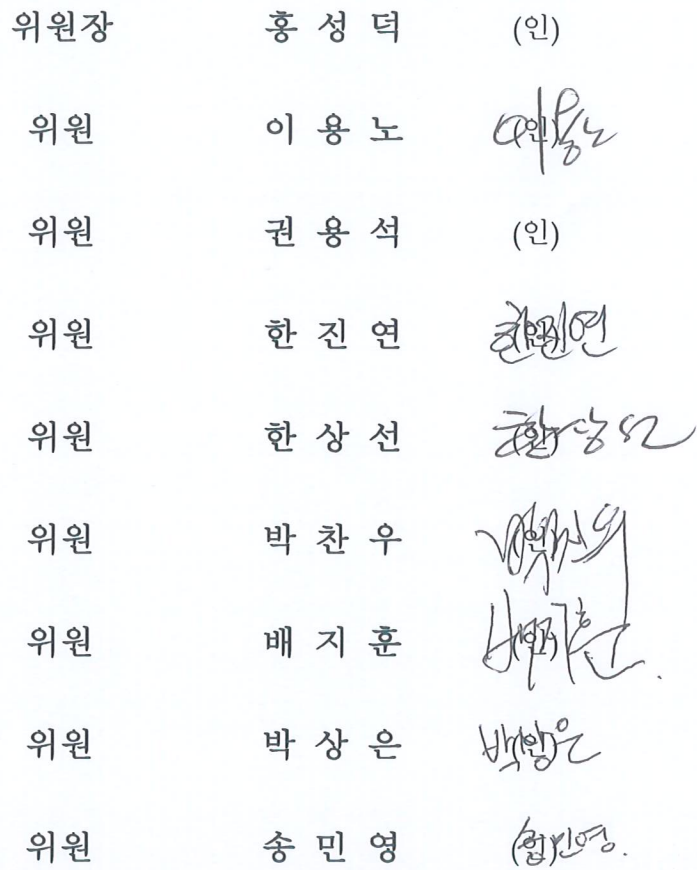 위원장 홍 성 덕 (인)
위원 이 용 노 (인) 이용노
위원 권 용 석 (인)
위원 한 진 연 (인) 한진연
위원 한 상 선 (인) 한상선
위원 박 찬 우 (인)
위원 배 지 훈 (인) 배지훈
위원 박 상 은 (인) 박상은
위원 송 민 영 (인) 송민영